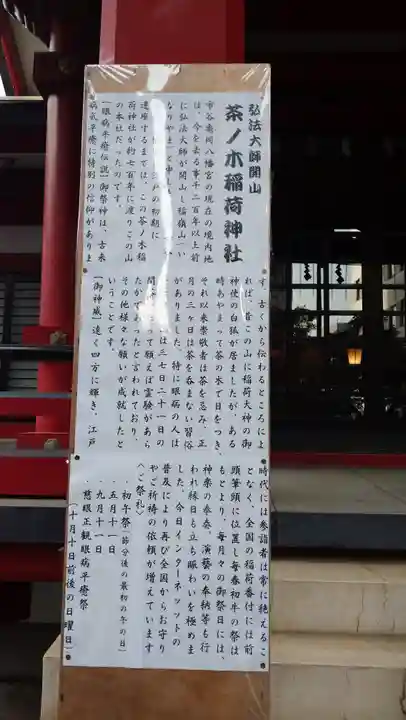 弘法大師開山
茶ノ木稲荷神社
市谷亀岡八幡宮の現在の境内地
は、今を去る事千二百年以上前
に弘法大師が開山し稲嶺山（い
なりやま）と申し
初期に
遷座するまでは、この茶ノ木稲
荷神社が約七百年に渡りこの山
の本社だったのです。
【眼病平癒伝説】御祭神は、古来
病気平癒に特別の信仰がありま
す。古くから伝わるところによ
れば、昔この山に稲荷大神の御
神使の白狐が居ましたが、ある
時あやまって茶の木で目をつき、
それ以来崇敬者は茶を忌み、正
月の三ヶ日は茶を呑まない習俗
がありました。特に眼病の人は
は三七日二十一日の
間茶を断って願えば霊験があら
たかであったと言われており、
その他様々な願いが成就したと
いうことです。
【御神威】遠く四方に輝き、江戸
時代には参詣者は常に絶えるこ
となく、全国の稲荷番付には前
頭筆頭に位置し毎春初午の祭は
もとより、毎月々の御祭日には、
神楽の奉奏、演芸の奉納等も行
われ縁日も立ち賑わいを極めま
した。今日インターネットの
普及により再び全国からお守り
やご祈祷の依頼が増えています
〈ご祭礼〉
・初午祭（節分後の最初の午の日）
・五月十一日
・九月十一日
・慈眼正観眼病平癒祭
（十月十日前後の日曜日）